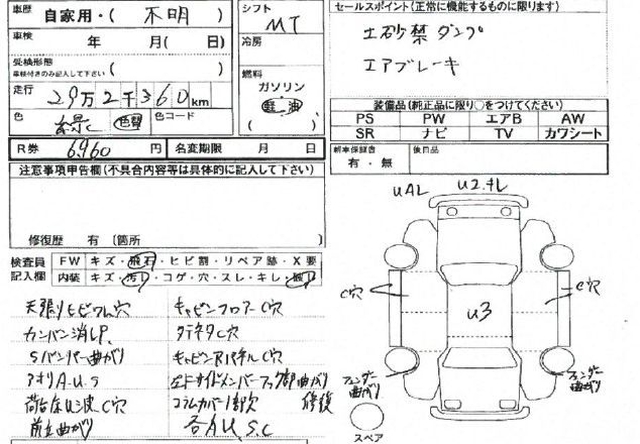 車歴
自家用・( 不明 )
シフト
MT
車検 年 月( 日)
冷房
受検形態
車検付きのみ記入して下さい ( )
燃料
ガソリン
軽油
( )
走行 29万2千360km
色 緑 色替 色コード
R券 6960 円 名変期限 月 日
セールスポイント (正常に機能するものに限ります)
土砂禁ダンプ
エアブレーキ
装備品 (純正品に限り○をつけてください)
PS PW エアB AW
SR ナビ TV カワシート
新車保証書
有・無
後日品
注意事項申告欄(不具合内容等は具体的に記入して下さい)
修復歴 有 (箇所 )
検査員
記入欄
FW キズ・飛石・ヒビ割・リペア跡・X要
内装 キズ・汚レ・コゲ・穴・スレ・キレ・
天張りヒビワレ穴
カンバン消しP.
Sバンパー曲がり
アオリA.U.S
荷台圧U波.C穴
前立曲がり
キャビンフロアーC穴
タテネタC穴
キャビンRパネルC穴
左ドサイドメンバーフック部曲がり
コラムカバー1部欠 修復
各AU.S.C
UAL
U2.キレ
C穴
U3
C穴
フェンダー
曲がり
フェンダー
曲がり
スペア